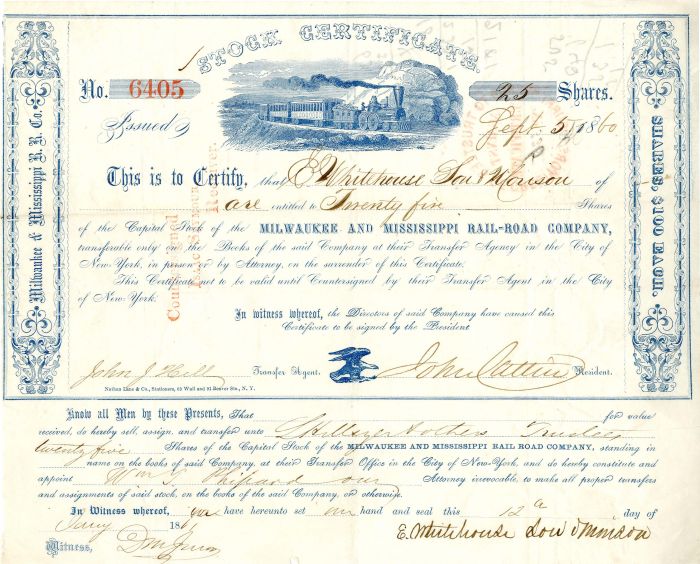 STOCK CERTIFICATE.
No. 6405
25 Shares.
Issued
Sept. 5 1860
This is to Certify, that E Whitehouse Son & Morison of
are entitled to Twenty five Shares
of the Capital Stock of the MILWAUKEE AND MISSISSIPPI RAIL-ROAD COMPANY,
transferable only on the Books of the said Company at their Transfer Agency in the City of
New-York, in person or by Attorney, on the surrender of this Certificate.
This Certificate not to be valid until Countersigned by their Transfer Agent in the City
of New-York.
In witness whereof, the Directors of said Company have caused this
Certificate to be signed by the President
John J Hill Transfer Agent.
John Catlin President.
Nathan Lane & Co., Stationers, 69 Wall and 91 Beaver Sts., N. Y.
Milwaukee & Mississippi R. R. Co.
SHARES, $100 EACH.
Receiver.
Know all Men by these Presents, That for value
received, do hereby sell, assign, and transfer unto Trustees
twenty five Shares of the Capital Stock of the MILWAUKEE AND MISSISSIPPI RAIL ROAD COMPANY, standing in
name on the books of said Company, at their Transfer Office in the City of New-York, and do hereby constitute and
appoint Wm Shipard our Attorney irrevocable, to make all proper transfers
and assignments of said stock, on the books of the said Company, or otherwise.
In Witness whereof, we have hereunto set our hand and seal this 12 day of
Jany 186
Witness,
E. Whitehouse Son & Morison